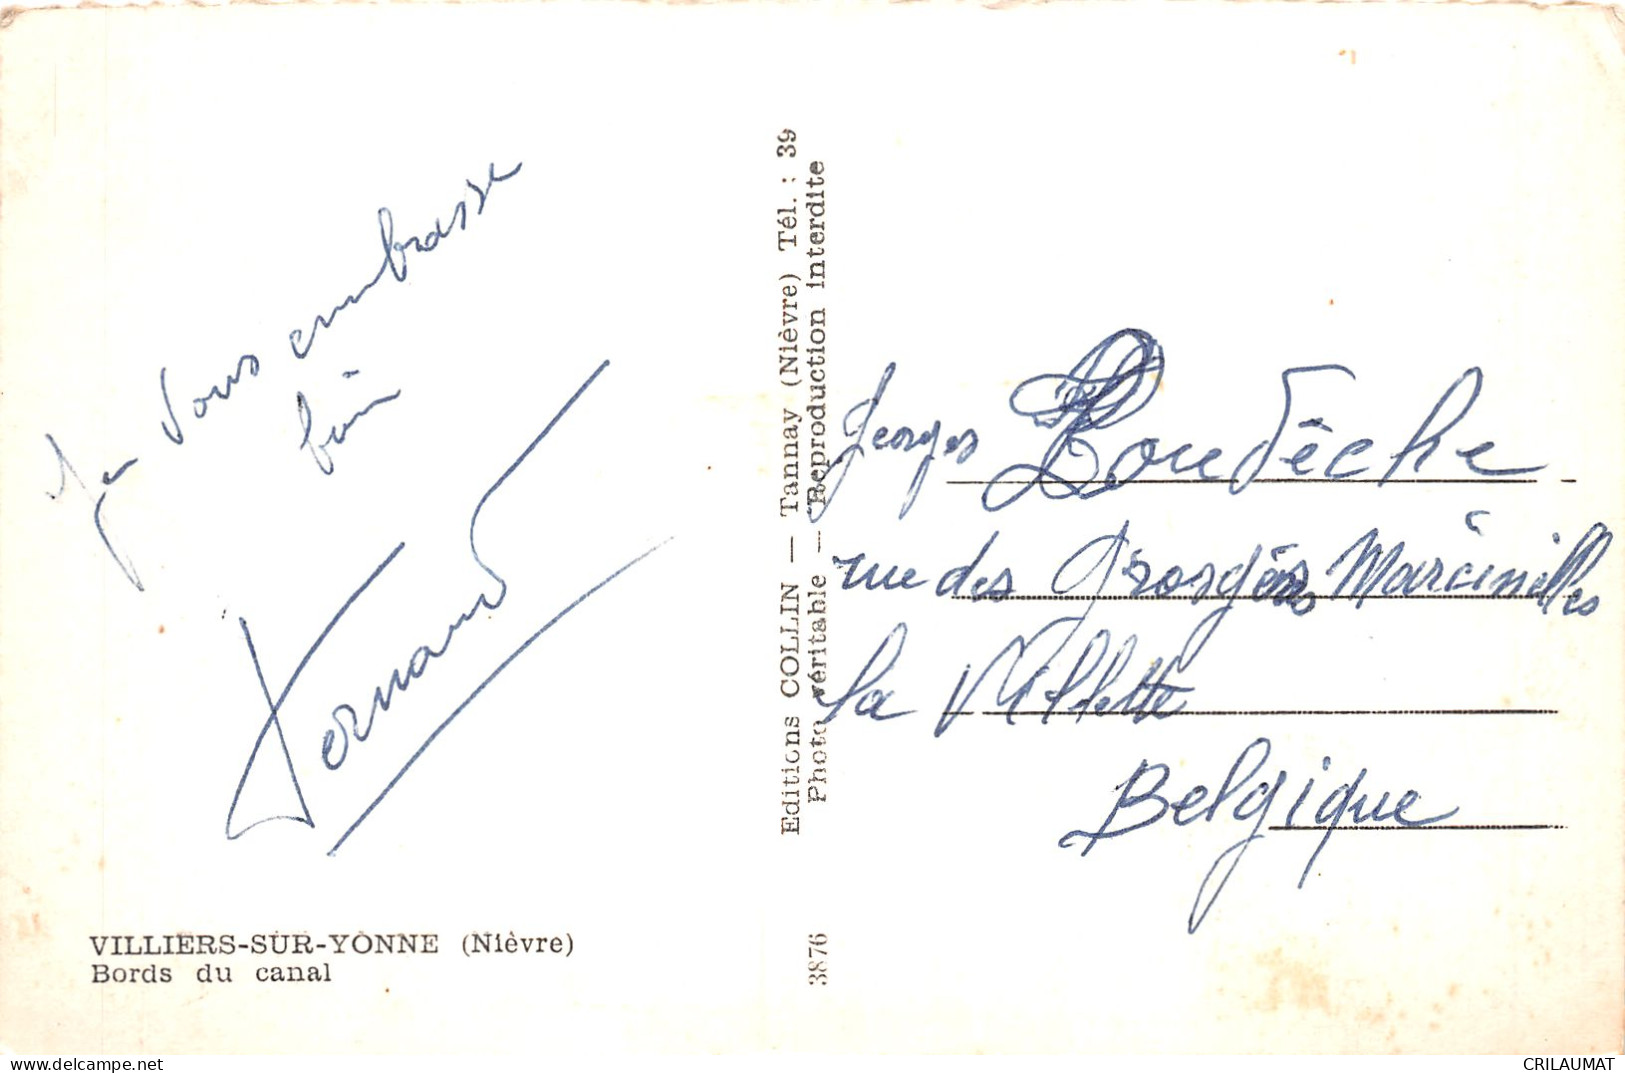 Je vous embrasse
bien
Fernand
VILLIERS-SUR-YONNE (Nièvre)
Bords du canal
Editions COLLIN — Tannay (Nièvre) Tél. : 39
Photo véritable — Reproduction interdite
3876
Georges
rue des Marcinelles
La Villette
Belgique
delcampe.net
CRILAUMAT